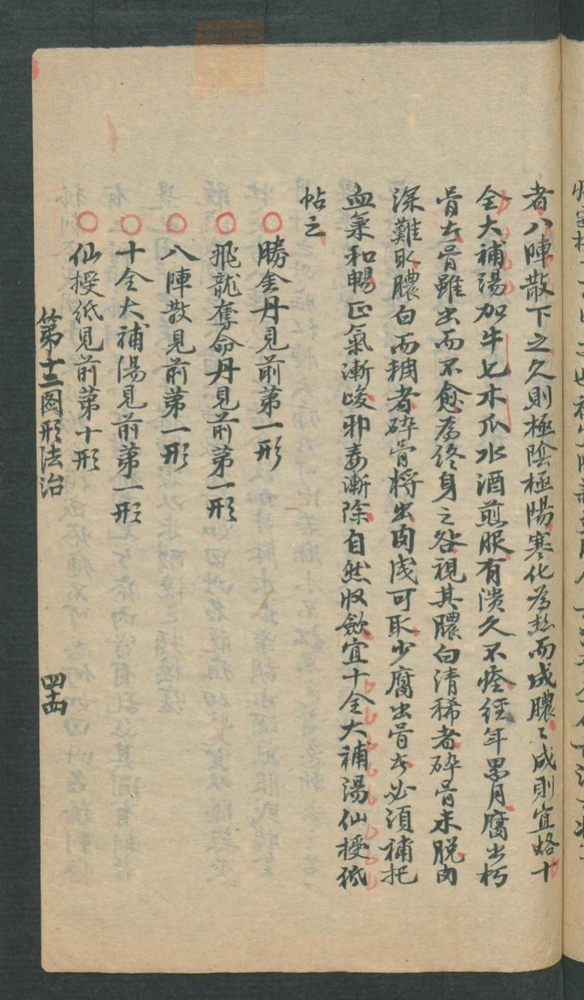 者八陣散下之久則極陰極陽寒化為熱而成膿〻成則宜烙十
全大補湯加牛七木瓜水酒煎服有潰久不痊經年累月腐出朽
骨去骨雖出而不愈為終身之咎視其膿白清稀者碎骨未脫肉
深難取膿白而稠者碎骨將出肉淺可取少腐出骨去必須補托
血氣和暢正氣漸收邪毒漸除自然收斂宜十全大補湯仙授紙
帖之
勝金丹見前第一形
飛龍奪命丹見前第一形
八陣散見前第一形
十全大補湯見前第一形
仙授紙見前第十形
第十三圖形法治
四十四